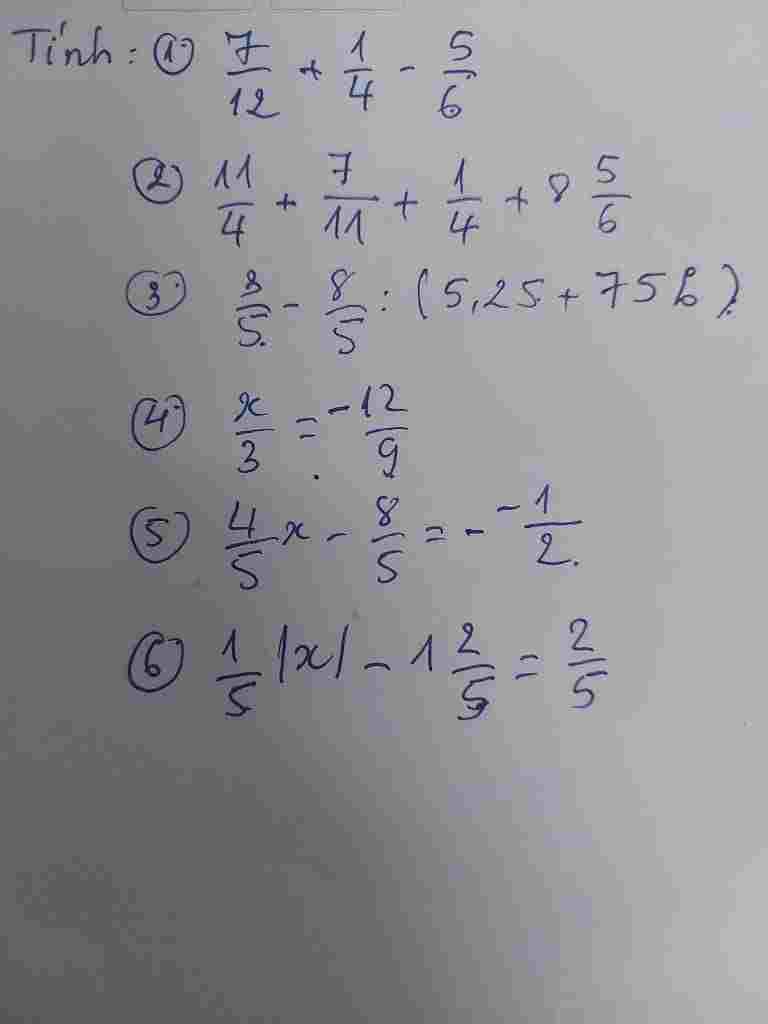 Tính: ① 7/12 + 1/4 - 5/6
② 11/4 + 7/11 + 1/4 + 8 5/6
③ 3/5 - 8/5 : (5,25 + 75%)
④ x/3 = -12/9
⑤ 4/5 x - 8/5 = - -1/2
⑥ 1/5 |x| - 1 2/5 = 2/5